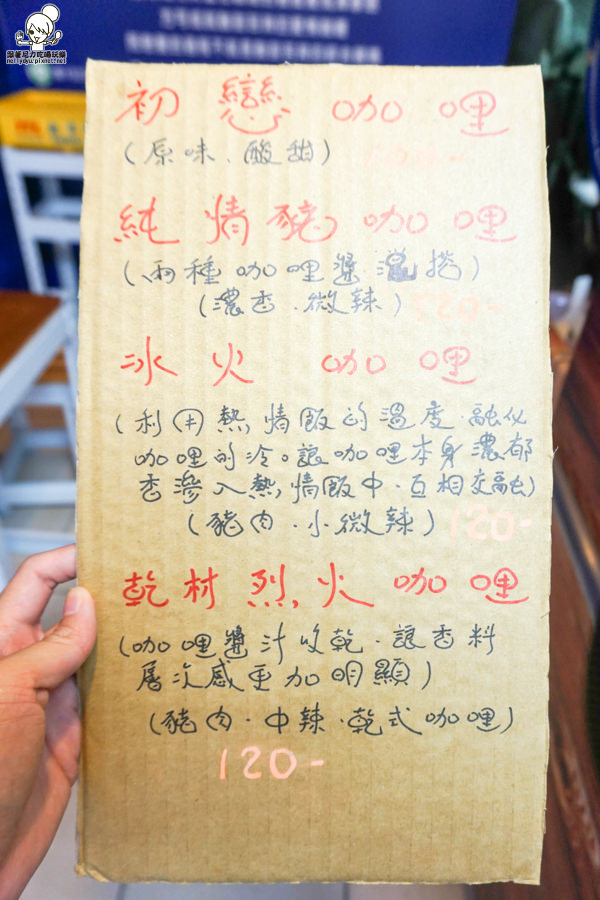 跟著尼力吃喝玩樂
nellydyu.pixnet.net
初戀咖哩
(原味、酸甜)
純情豬咖哩
(兩種咖哩醬混搭)
(濃香.微辣) 120-
冰火咖哩
(利用熱情飯的溫度.融化
咖哩的冷。讓咖哩本身濃郁
香滲入熱情飯中.互相交融)
(豬肉.小微辣) 120-
乾材烈火咖哩
(咖哩醬汁收乾.讓香料
層次感更加明顯)
(豬肉.中辣.乾式咖哩)
120-